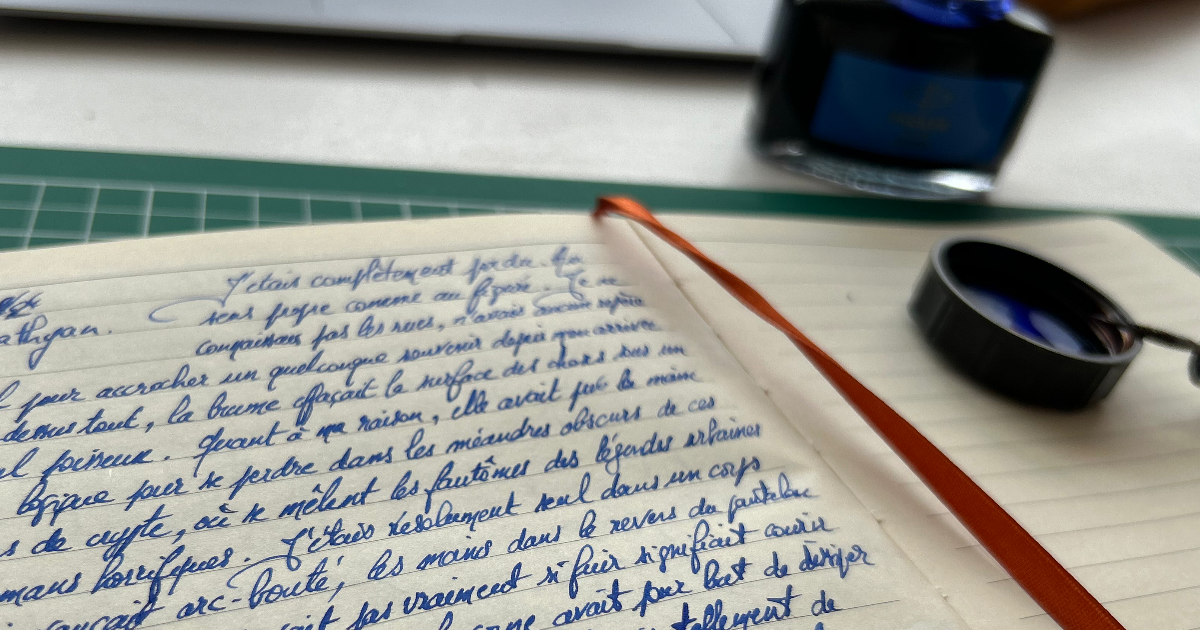 J'étais complètement perdu. Au
sens propre comme au figuré. Je ne
connaissais pas les rues, n'avais aucun repère
pour accrocher un quelconque souvenir depuis mon arrivée
dessus tout, la brume effaçait la surface des choses sous un
poisseux. Quant à ma raison, elle avait pris le même
logique pour se perdre dans les méandres obscurs de ces
s de crypte, où se mêlent les fantômes des légendes urbaines
mans horrifiques. J'étais résolument seul dans un corps
arc-bouté, les mains dans le revers du pantalon
pas vraiment si fuir signifiait courir
avait pour but de diriger
tellement de